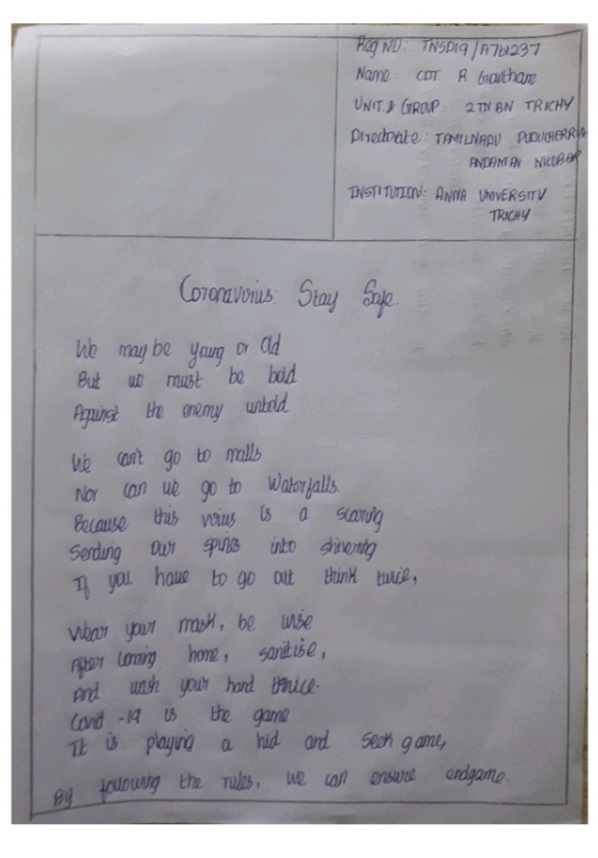 Reg NO: TNSD19/A761237
Name: CDT R Gowtham
UNIT & GROUP: 2 TN BN TRICHY
Directorate: TAMILNADU PUDUCHERRY
ANDAMAN NICOBAR
INSTITUTION: ANNA UNIVERSITY
TRICHY
Coronavirus: Stay Safe.
We may be young or Old
But we must be bold
Against the enemy untold
We can't go to malls
Nor can we go to Waterfalls.
Because this virus is a scaring
Sending our spines into shivering
If you have to go out think twice,
Wear your mask, be wise
After coming home, sanitise,
And wash your hand thrice.
Covid -19 is the game
It is playing a hid and seek game,
By following the rules, we can ensure endgame.